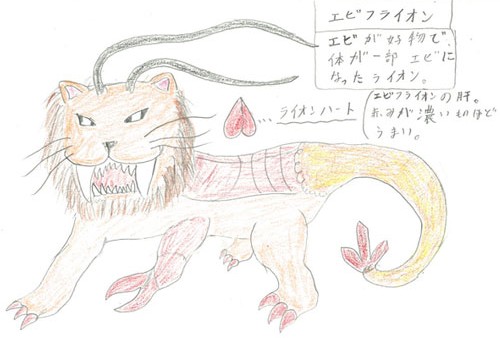 エビフライオン
エビが好物で、
体が一部エビに
なったライオン。
エビフライオンの肝。
赤みが濃いものほど
うまい。
…ライオンハート